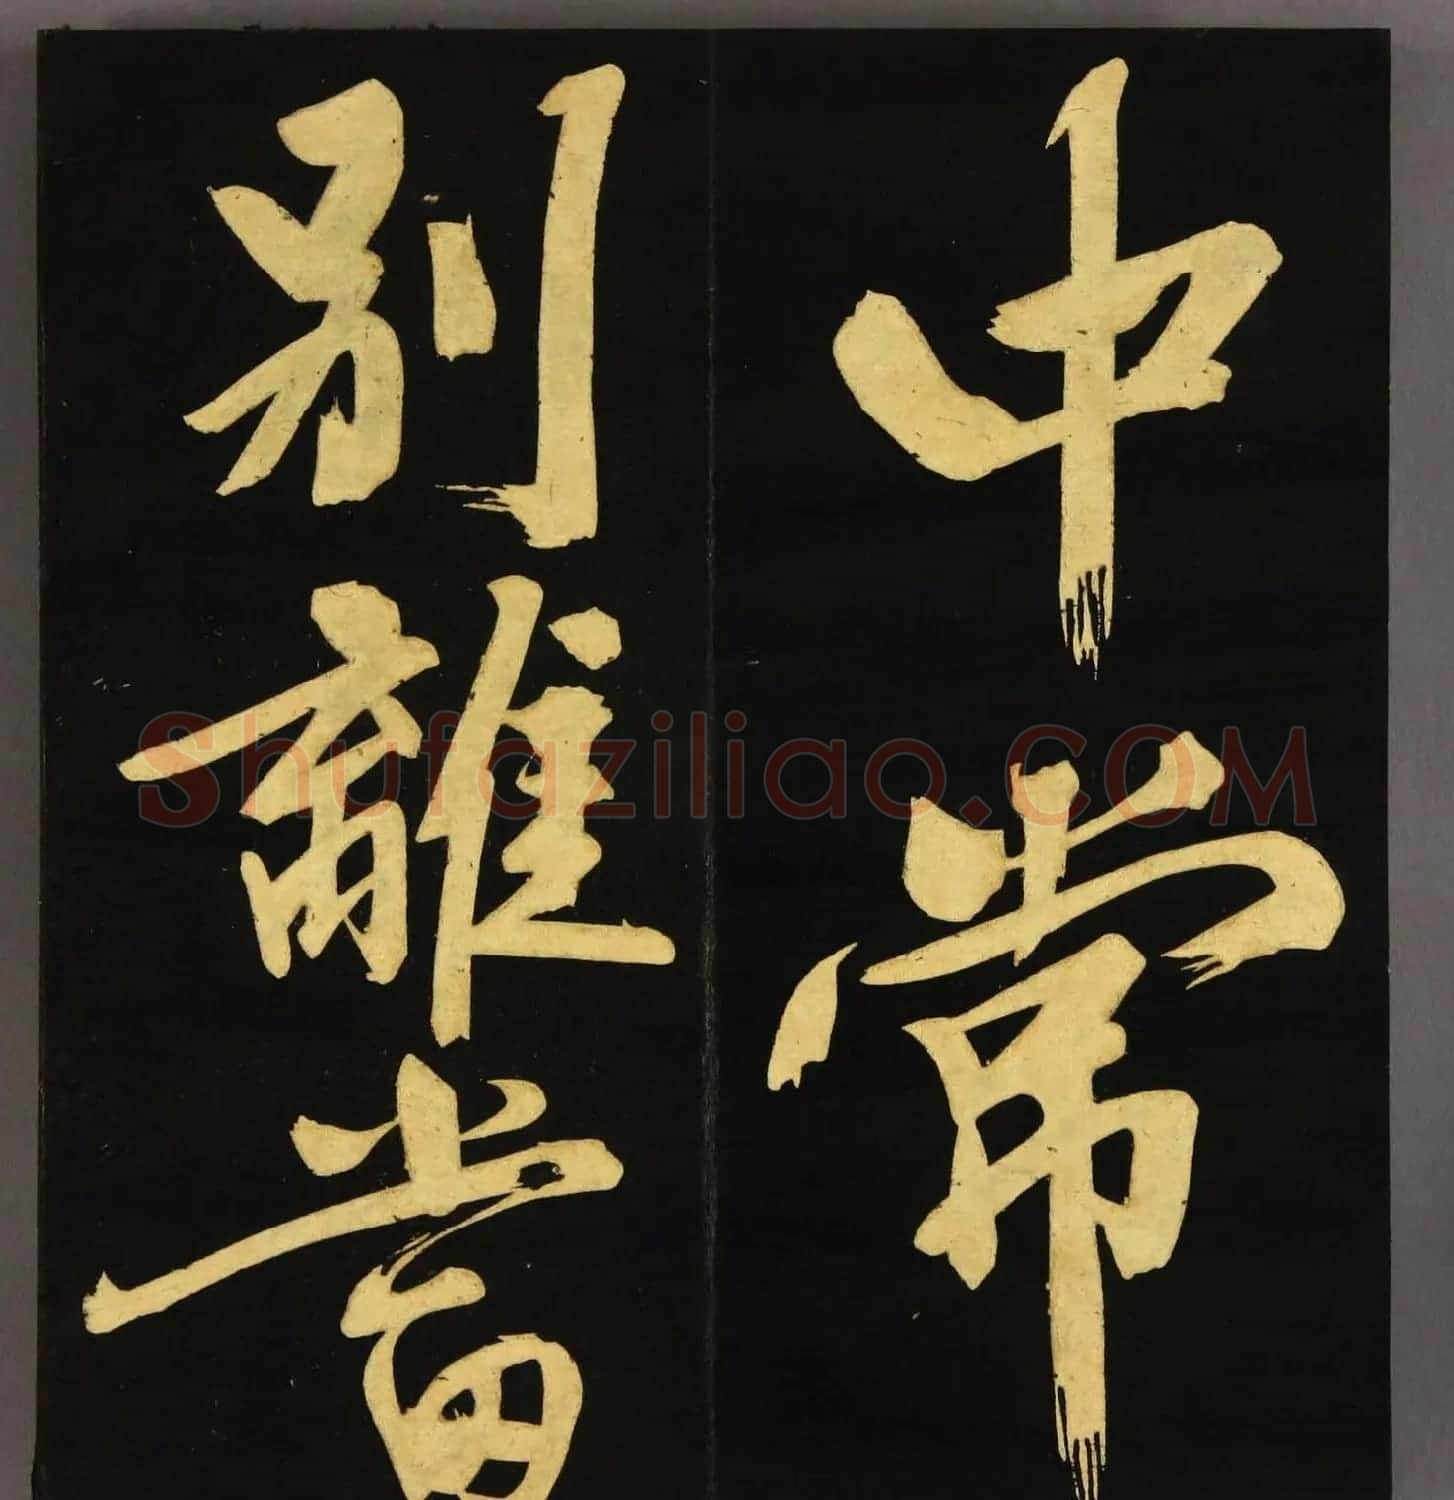 中常
別離當
Shufaziliao.COM